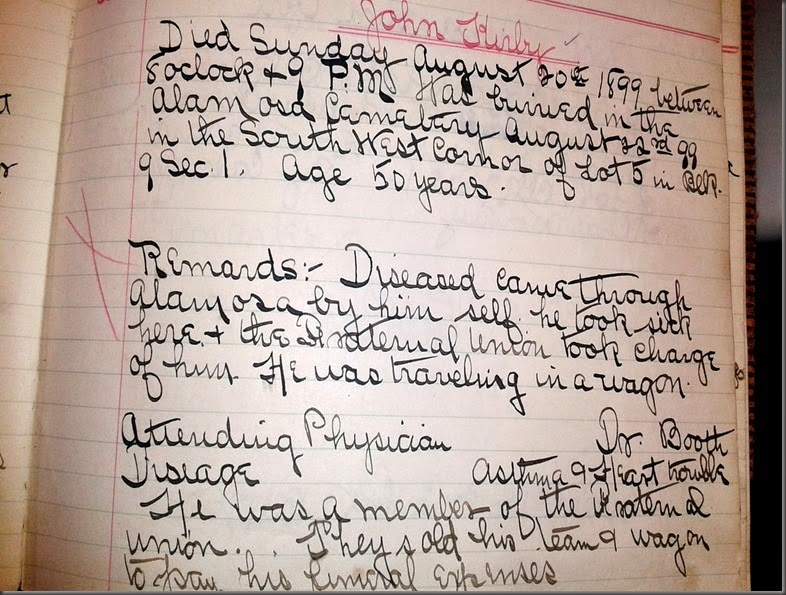 John Kirby
Died Sunday August 20th 1899 between
8 oclock & 9 P.M. Was buried in the
Alamosa Cemabtary August 22nd 99
in the South West Corner of Lot 5 in Blk.
9 Sec. 1. Age 50 years.
Remards:- Diseased came through
Alamosa by him self. he took sick
here & the Fraternal Union took charge
of him. He was traveling in a wagon.
Attending Physician Dr. Booth
Disease Asthma & Heart trouble
He was a member of the Fraternal
union. They sold his team & wagon
to pay his funeral expenses